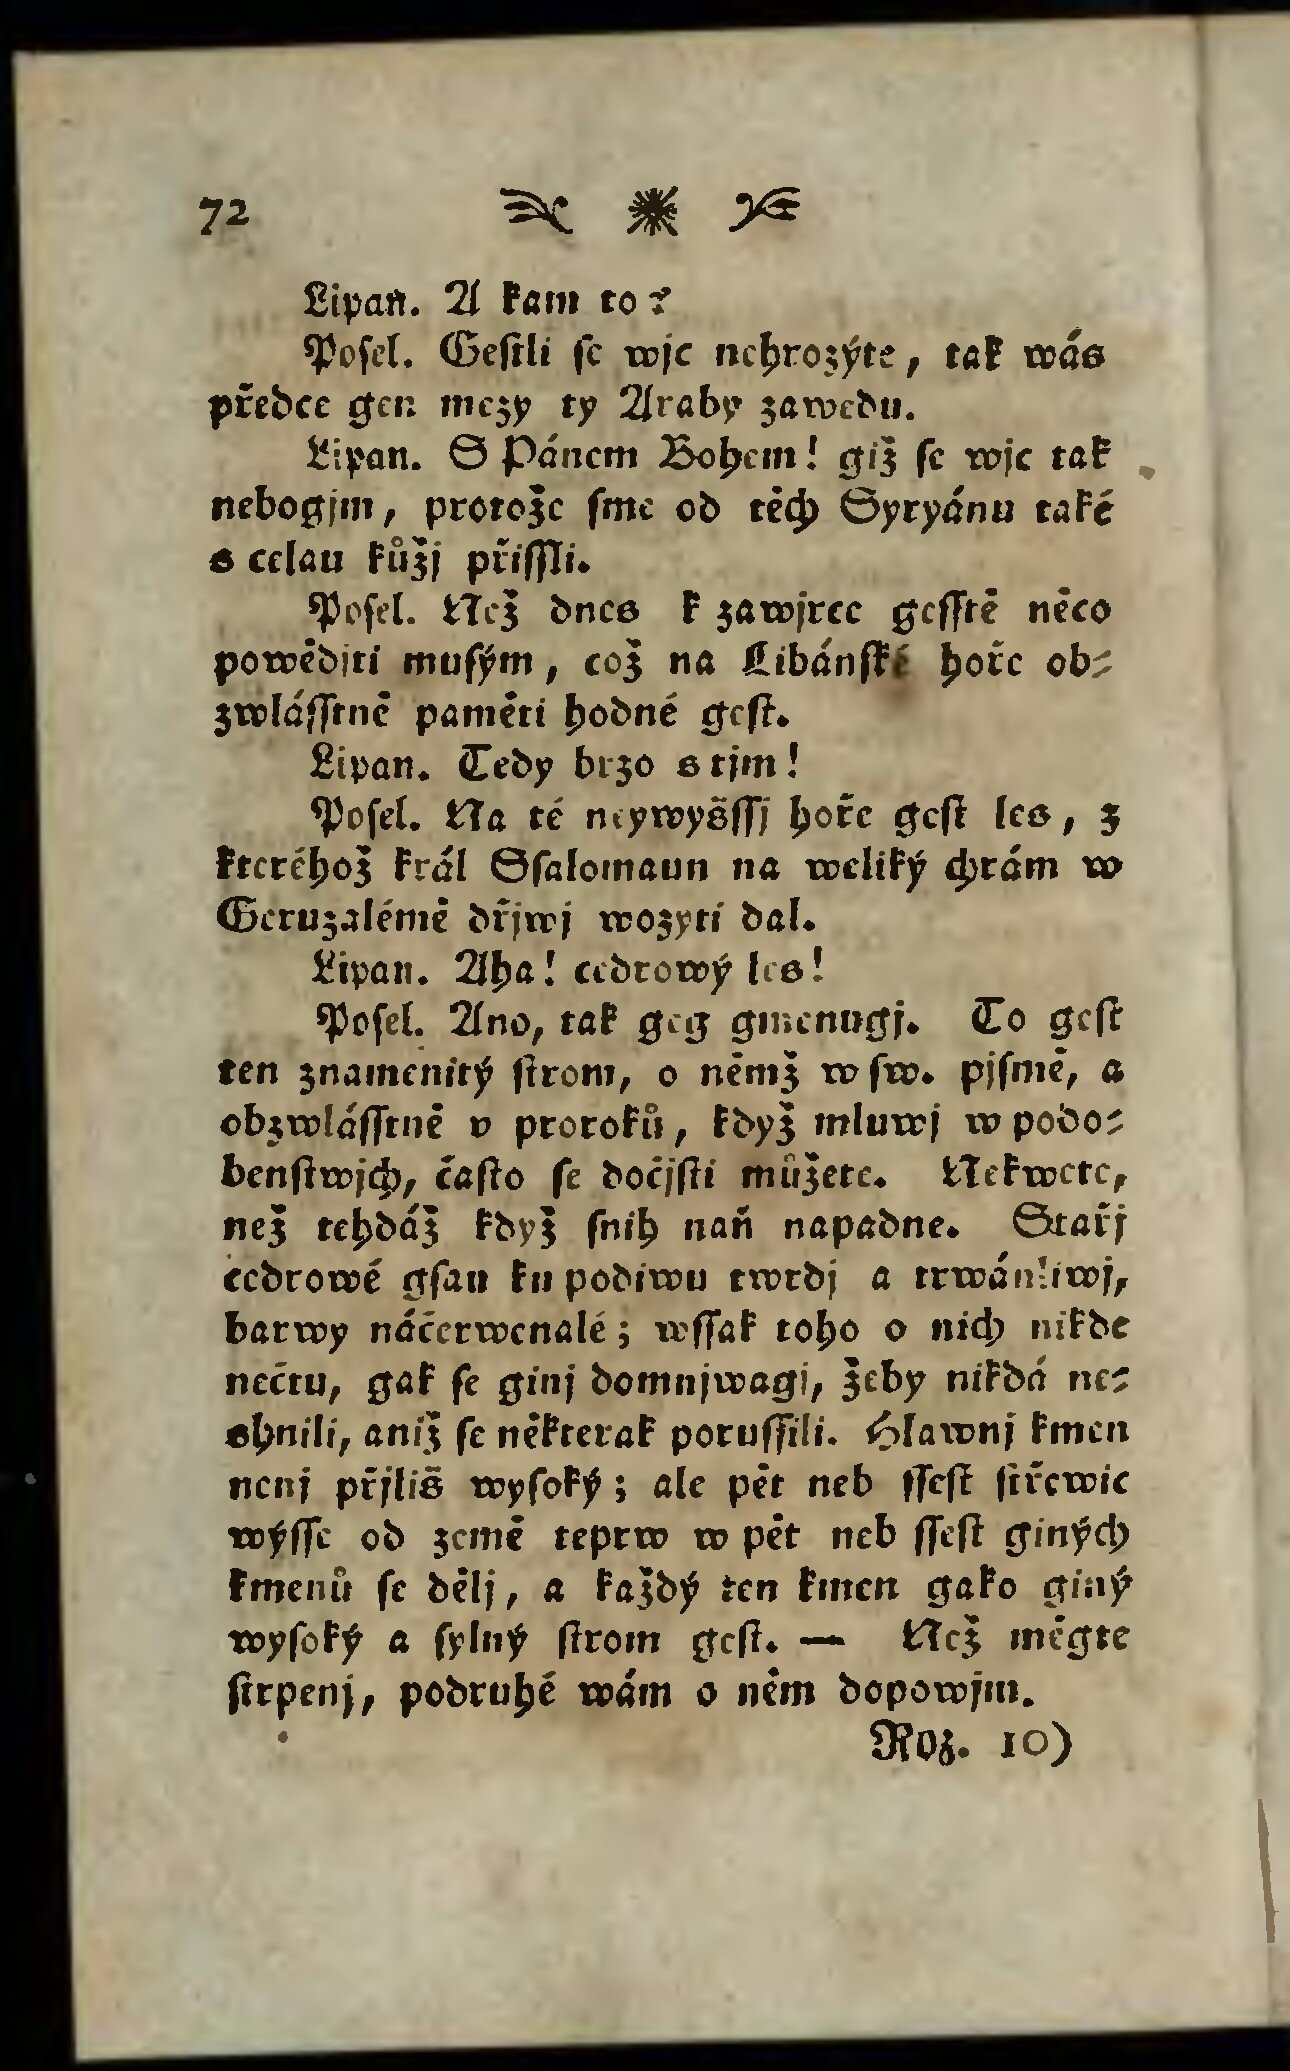 72
Lipan. A kam to?
Posel. Gestli se wjc nehrozýte, tak wás
předce gen mezy ty Araby zawedu.
Lipan. S Pánem Bohem! giž se wjc tak
nebogjm, protože sme od těch Syryánu také
s celau kůžj přissli.
Posel. Než dnes k zawjrce gesstě něco
powědjti musým, což na Libánské hoře ob-
zwlásstně paměti hodné gest.
Lipan. Tedy brzo s tjm!
Posel. Na té neywyšssj hoře gest les, z
kteréhož král Ssalomaun na weliký chrám w
Geruzalémě dřjwj wozyti dal.
Lipan. Aha! cedrowý les!
Posel. Ano, tak geg gmenugj. To gest
ten znamenitý strom, o němž w sw. pjsmě, a
obzwlásstně v proroků, když mluwj w podo-
benstwjch, často se dočjsti můžete. Nekwete,
než tehdáž když snih naň napadne. Stařj
cedrowé gsau ku podiwu twrdj a trwánliwj,
barwy náčerwenalé; wssak toho o nich nikde
nečtu, gak se ginj domnjwagi, žeby nikdá ne-
shnili, aniž se některak porussili. Hlawnj kmen
nenj přjliš wysoký; ale pět neb ssest střewic
wýsse od země teprw w pět neb ssest giných
kmenů se dělj, a každý ten kmen gako giný
wysoký a sylný strom gest. — Než měgte
strpenj, podruhé wám o něm dopowjm.
Roz. 10)